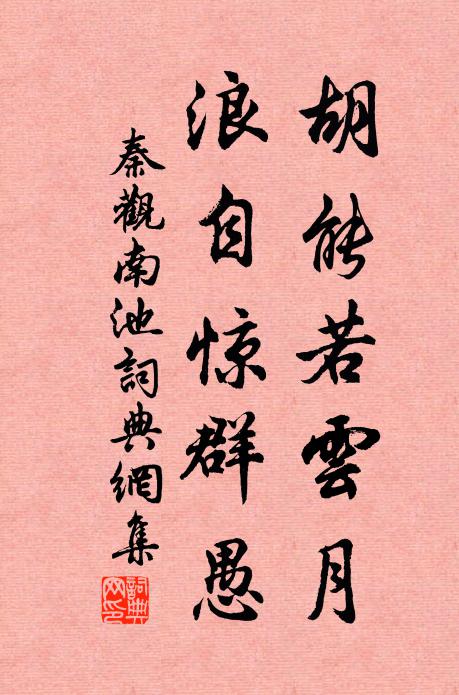 胡能若雲月
浪自惊群愚
秦觀南池詞典網集
詞典網印